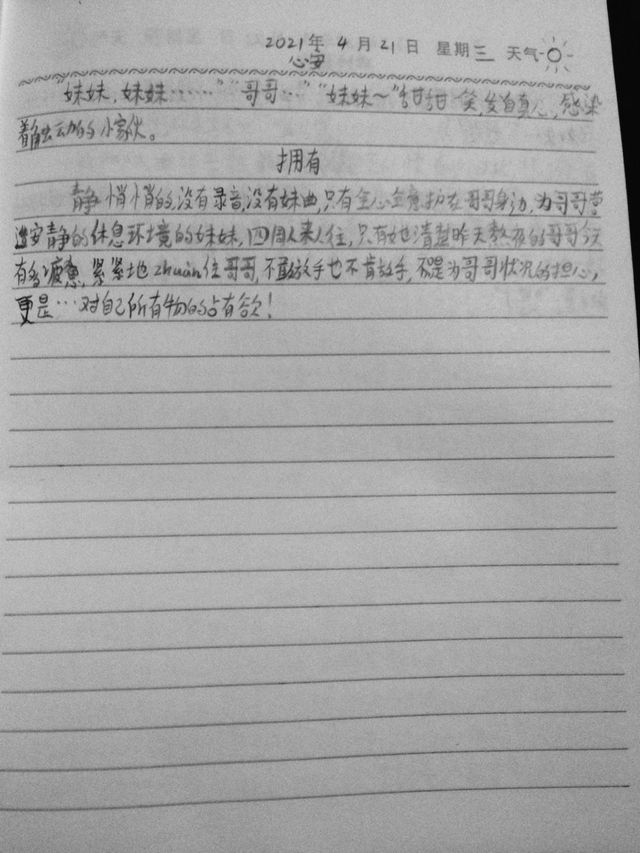 2021年 4月21日 星期三 天气
心安
“妹妹,妹妹……”“哥哥…”“妹妹~”甜甜笑,发自真心,感染
着触动的小家伙。
拥有
静悄悄的,没有录音,没有妹曲,只有全心全意护在哥哥身边,为哥哥营
造安静的休息环境的妹妹,四周人来人往,只有她清楚昨天熬夜的哥哥今天
有多疲惫,紧紧地zhuàn住哥哥,不敢放手也不肯放手,不是为哥哥状况的担心,
更是…对自己所有物的占有欲!